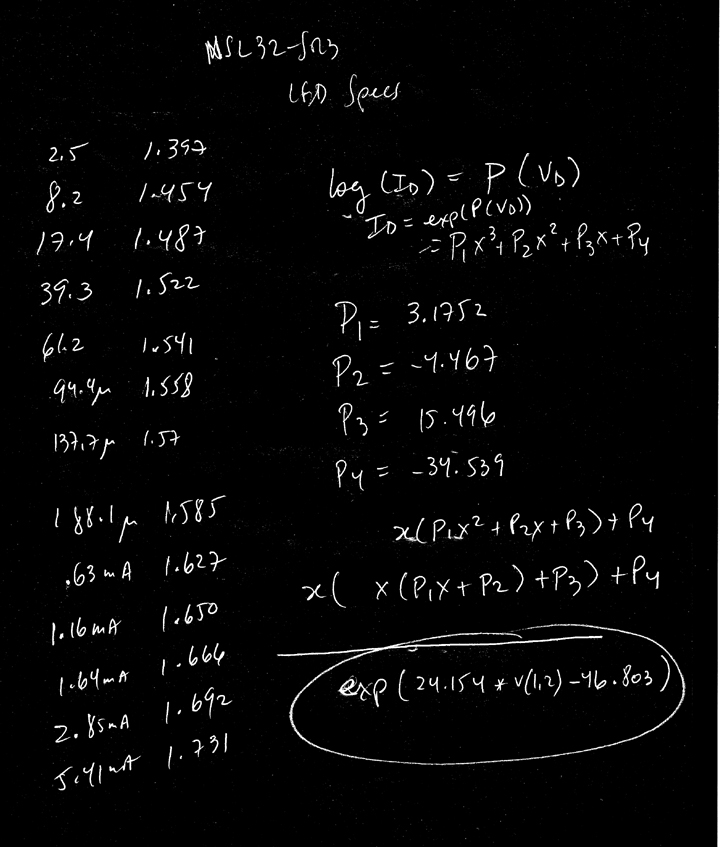 NSL32-SR3
LED Specs
2.5 1.397
8.2 1.454
17.4 1.487
39.3 1.522
61.2 1.541
94.4μ 1.558
137.7μ 1.57
188.1μ 1.585
.63mA 1.627
1.16mA 1.650
1.64mA 1.666
2.85mA 1.692
5.41mA 1.731
log (I_D) = P(V_D)
I_D = exp(P(V_D))
= P₁x³ + P₂x² + P₃x + P₄
P₁ = 3.1752
P₂ = -4.467
P₃ = 15.496
P₄ = -34.539
x(P₁x² + P₂x + P₃) + P₄
x( x(P₁x + P₂) + P₃) + P₄
exp(24.154 * v(1,2) - 46.803)